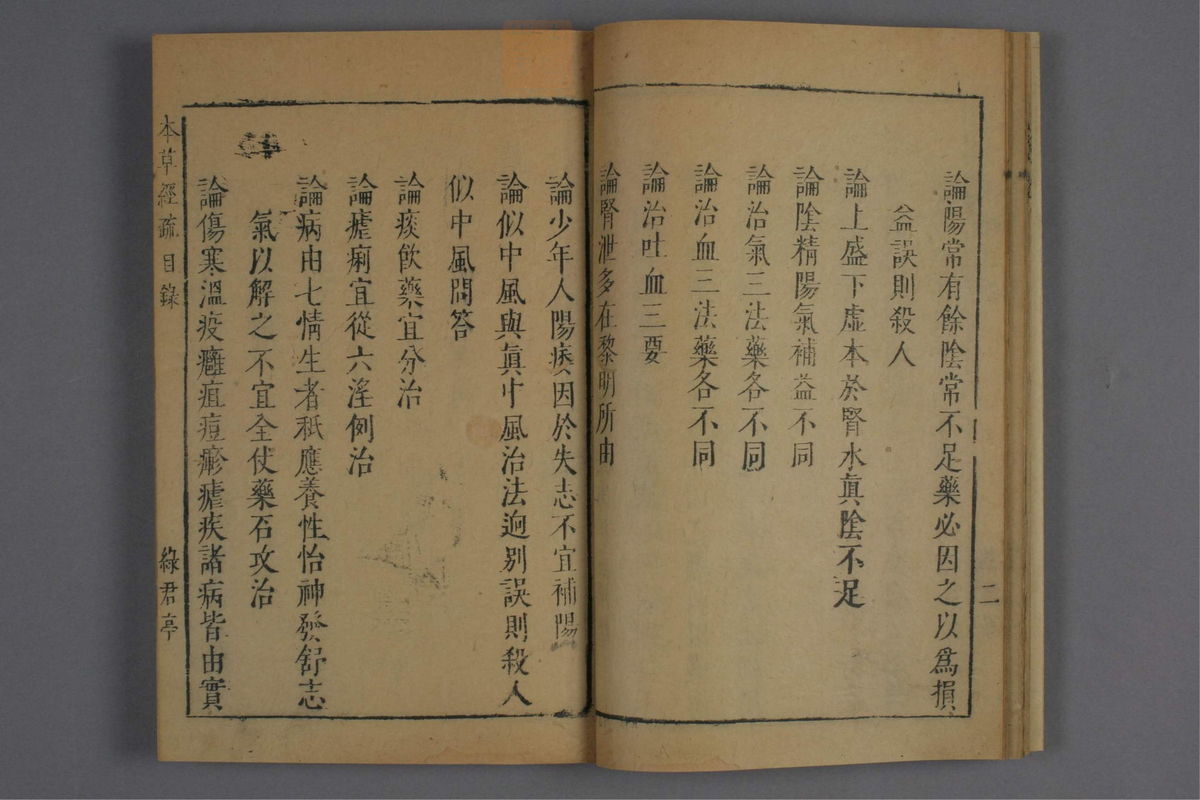 論陽常有餘陰常不足藥必因之以爲損
益誤則殺人
論上盛下虛本於腎水眞陰不足
論陰精陽氣補益不同
論治氣三法藥各不同
論治血三法藥各不同
論治吐血三要
論腎泄多在黎明所由
二
論少年人陽痿因於失志不宜補陽
論似中風與眞中風治法逈別誤則殺人
似中風問答
論痰飲藥宜分治
論瘧痢宜從六淫例治
論病由七情生者秪應養性怡神發舒志
氣以解之不宜全仗藥石攻治
論傷寒溫疫癰疽痘疹瘧疾諸病皆由實
本草經疏 目錄 綠君亭